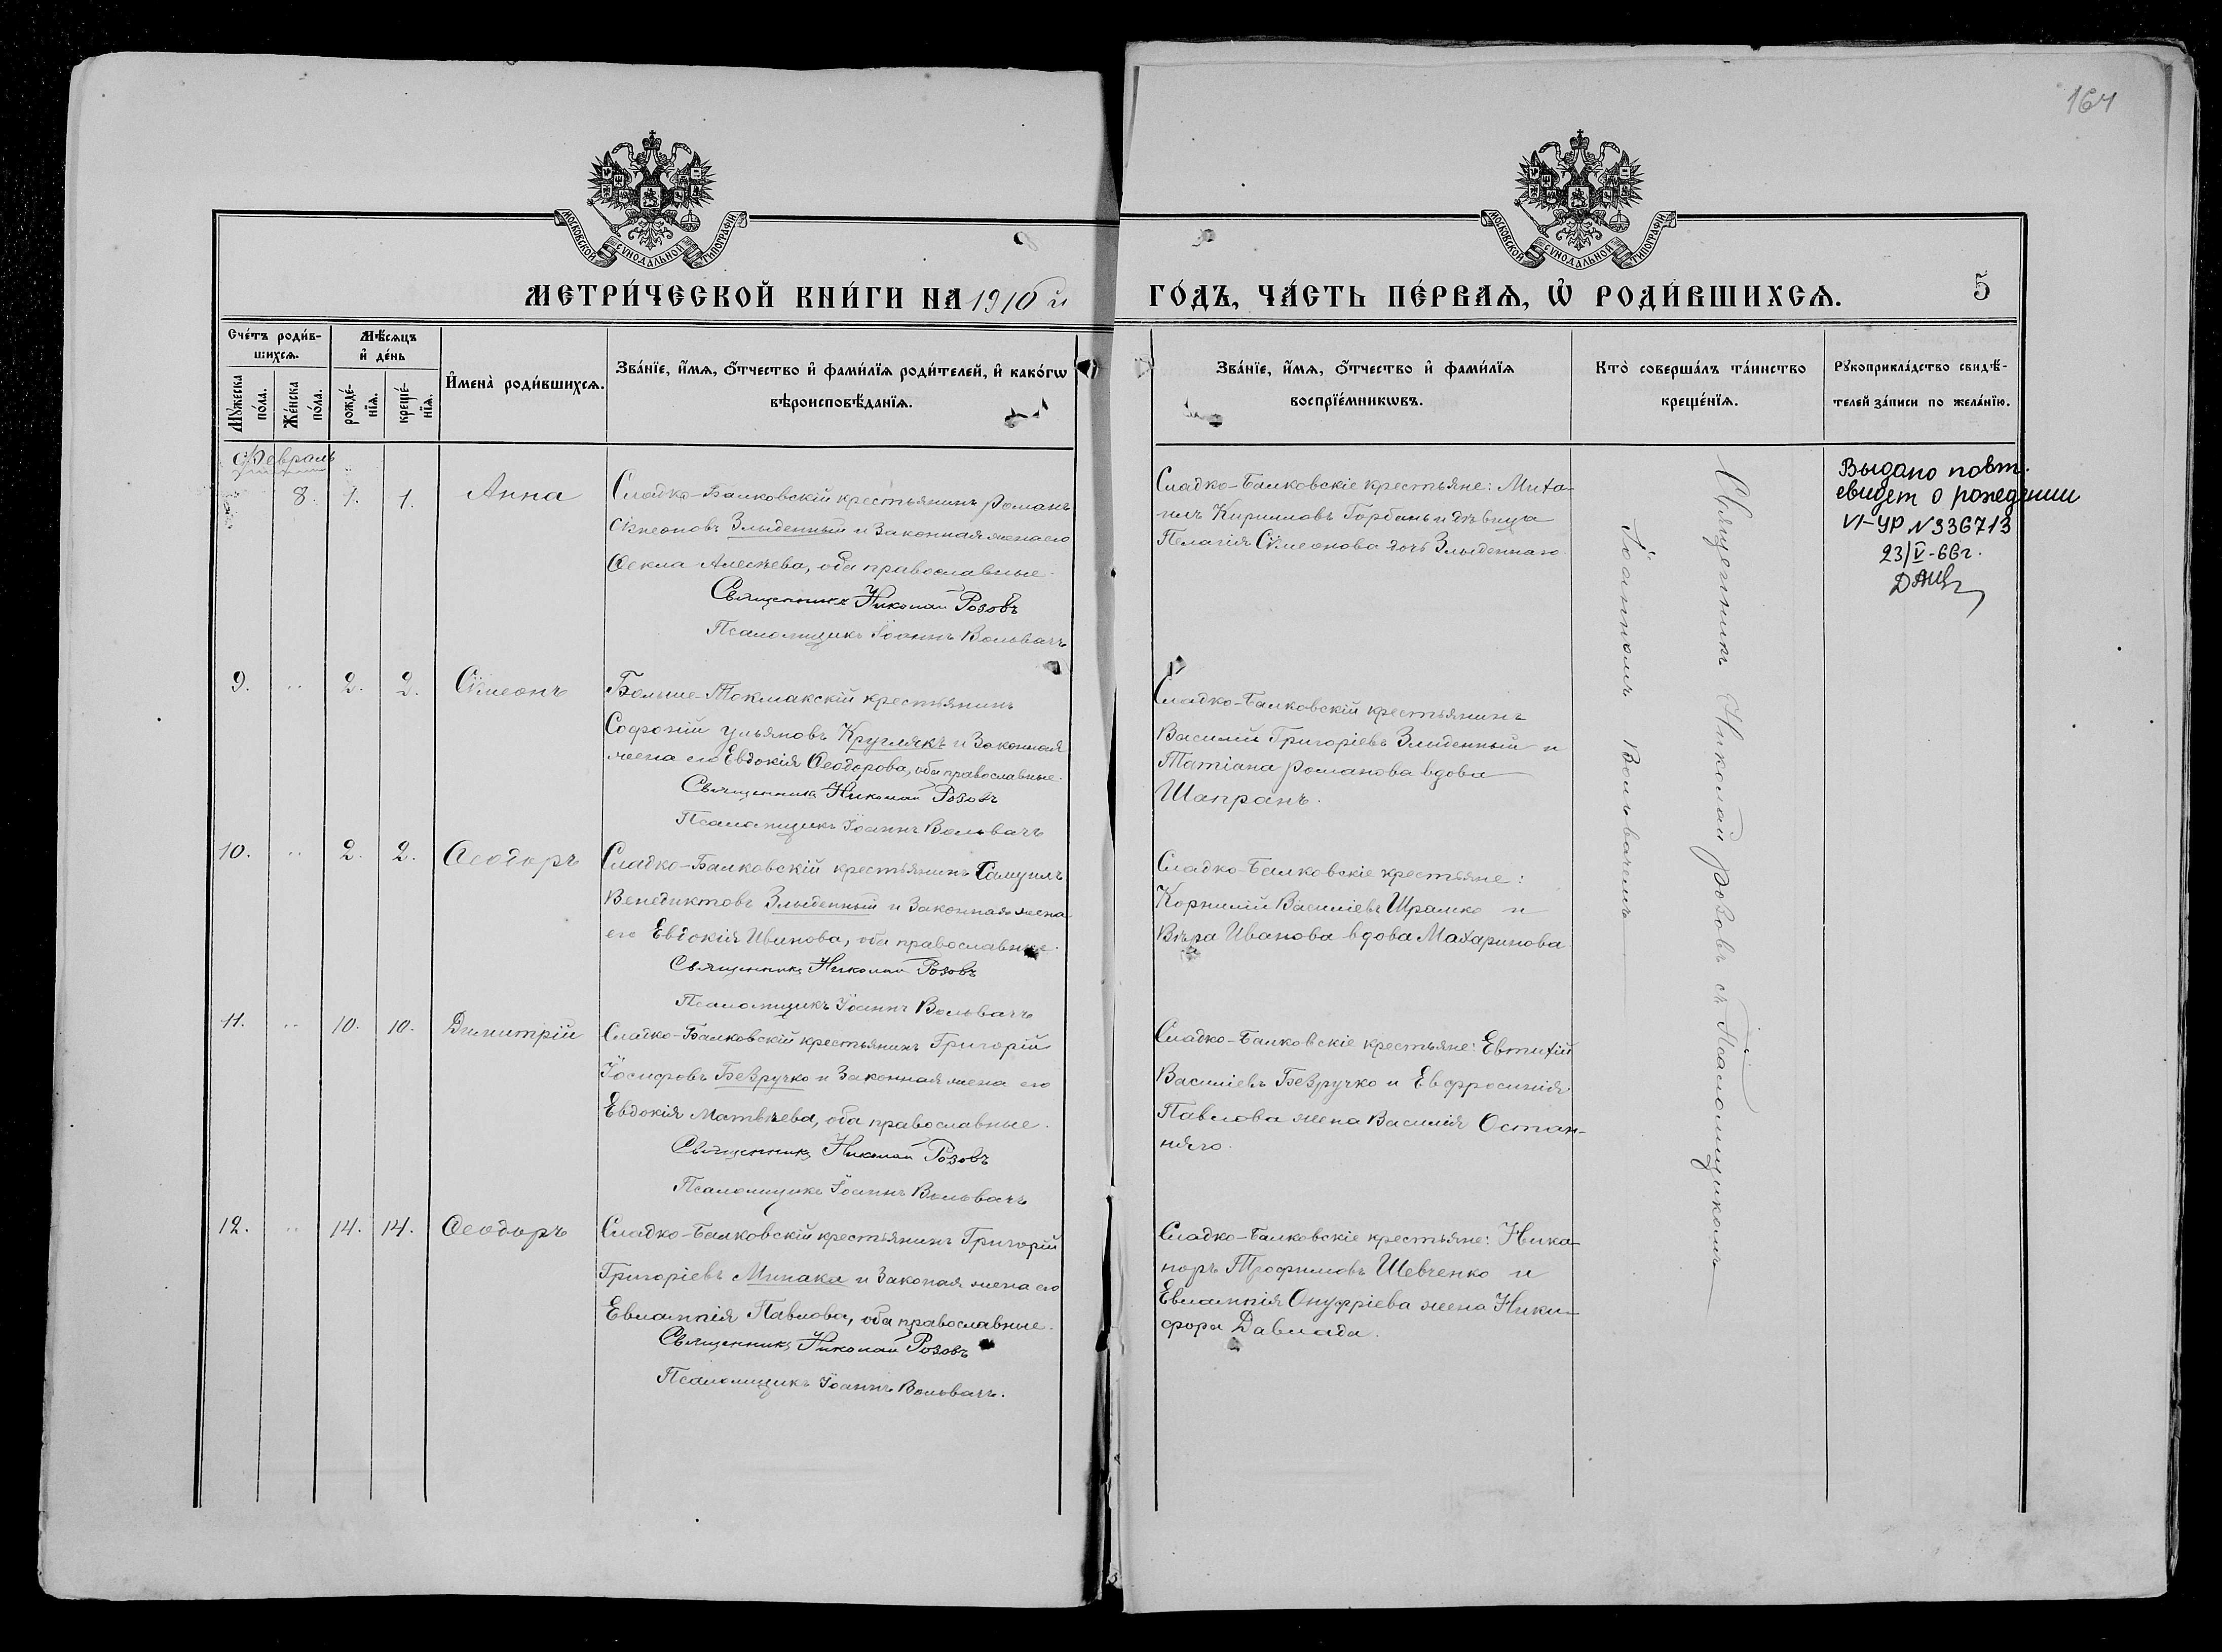 164
МОСКОВСКОЙ СѴНОДАЛЬНОЙ ТИПОГРАФІИ
МОСКОВСКОЙ СѴНОДАЛЬНОЙ ТИПОГРАФІИ
МЕТРИ́ЧЕСКОЙ КНИ́ГИ НА 1916 й
ГО́ДЪ, ЧА́СТЬ ПЕ́РВАѦ, Ѡ҆ РОДИ́ВШИХСѦ.
5
Сче́тъ роди́в-
шихсѧ.
Мѣ́сѧцъ
и҆ де́нь
Мꙋ́жеска
по́ла.
Же́нска
по́ла.
рожде́-
нїѧ.
креще́-
нїѧ.
И҆мена̀ роди́вшихсѧ.
Зва́нїе, и҆́мѧ, ѻ҆́тчество и҆ фами́лїѧ роди́телей, и҆ како́гѡ
вѣроисповѣ́данїѧ.
Зва́нїе, и҆́мѧ, ѻ҆́тчество и҆ фами́лїѧ
воспрїе́мникѡвъ.
Кто̀ соверша́лъ та́инство
креще́нїѧ.
Рꙋкоприкла́дство свидѣ́-
телей за́писи по жела́нїю.
Февраль
8. 1. 1. Анна
Сладко-Балковскій крестьянинъ Романъ
Сѵмеоновъ Злыденный и законная жена его
Ѳекла Алексѣева, оба православные.
Священникъ Николай Розовъ
Псаломщикъ Іоаннъ Вольвачъ
Сладко-Балковскіе крестьяне: Миха-
илъ Кирилловъ Горбань и дѣвица
Пелагія Сѵмеонова дочь Злыденнаго
Выдано повт.
свидет о рождении
VI-УР N 336713
23/V-66г.
9. " 2. 2. Сѵмеонъ
Больше-Токмакскій крестьянинъ
Софроній Ульяновъ Круглякъ и законная
жена его Евдокія Ѳеодорова, оба православные.
Священникъ Николай Розовъ
Псаломщикъ Іоаннъ Вольвачъ
Сладко-Балковскій крестьянинъ
Василій Григоріевъ Злыденный и
Татіана Романова вдова
Шапранъ.
10. " 2. 2. Ѳеодоръ
Сладко-Балковскій крестьянинъ Самуилъ
Венедиктовъ Злыденный и законная жена
его Евдокія Иванова, оба православные.
Священникъ Николай Розовъ
Псаломщикъ Іоаннъ Вольвачъ
Сладко-Балковскіе крестьяне:
Корнилій Василіевъ Шрамко и
Вѣра Иванова вдова Махаринова
11. " 10. 10. Димитрій
Сладко-Балковскій крестьянинъ Григорій
Іосифовъ Безручко и законная жена его
Евдокія Матвѣева, оба православные.
Священникъ Николай Розовъ
Псаломщикъ Іоаннъ Вольвачъ
Сладко-Балковскіе крестьяне: Евтихій
Василіевъ Безручко и Евфросинія
Павлова жена Василія Остан-
няго.
12. " 14. 14. Ѳеодоръ
Сладко-Балковскій крестьянинъ Григорій
Григоріевъ Минака и законая жена его
Евлампія Павлова, оба православные.
Священникъ Николай Розовъ
Псаломщикъ Іоаннъ Вольвачъ.
Сладко-Балковскіе крестьяне: Ника-
норъ Трофимовъ Шевченко и
Евлампія Онуфріева жена Ники-
фора Давлада.
Священникъ Николай Розовъ съ Псаломщикомъ
Іоанномъ Вольвачемъ